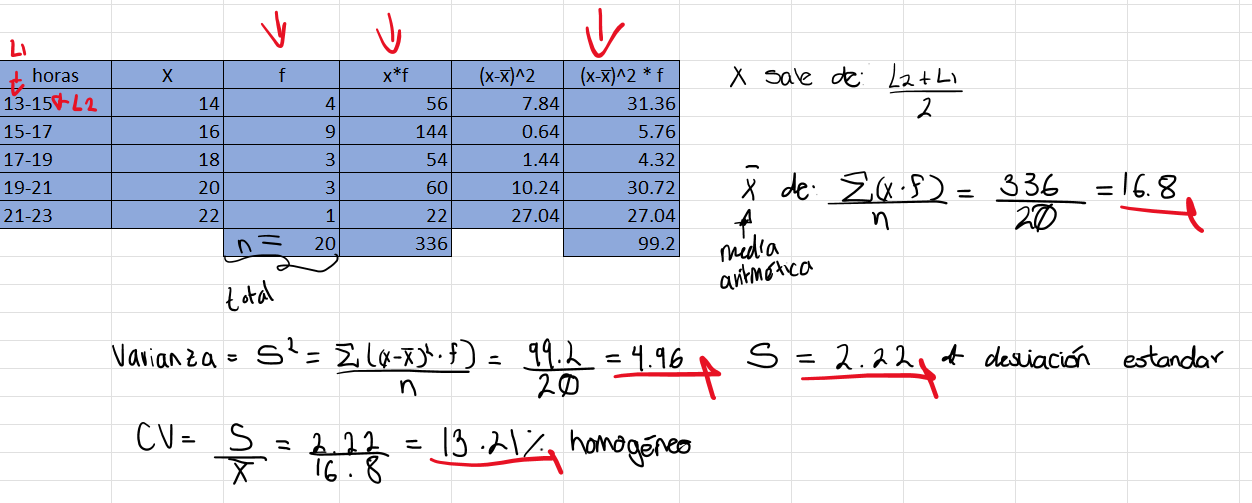 L1
horas X f x*f (x-x̅)^2 (x-x̅)^2 * f
13-15 L2 14 4 56 7.84 31.36
15-17 16 9 144 0.64 5.76
17-19 18 3 54 1.44 4.32
19-21 20 3 60 10.24 30.72
21-23 22 1 22 27.04 27.04
n = 20 336 99.2
total
X sale de: L2+L1 / 2
x̅ de: Σ(x·f) / n = 336 / 20 = 16.8
media
aritmética
Varianza = S² = Σ(x-x̅)²·f) / n = 99.2 / 20 = 4.96 S = 2.22 desviación estandar
CV = S / x̅ = 2.22 / 16.8 = 13.21% homogéneo